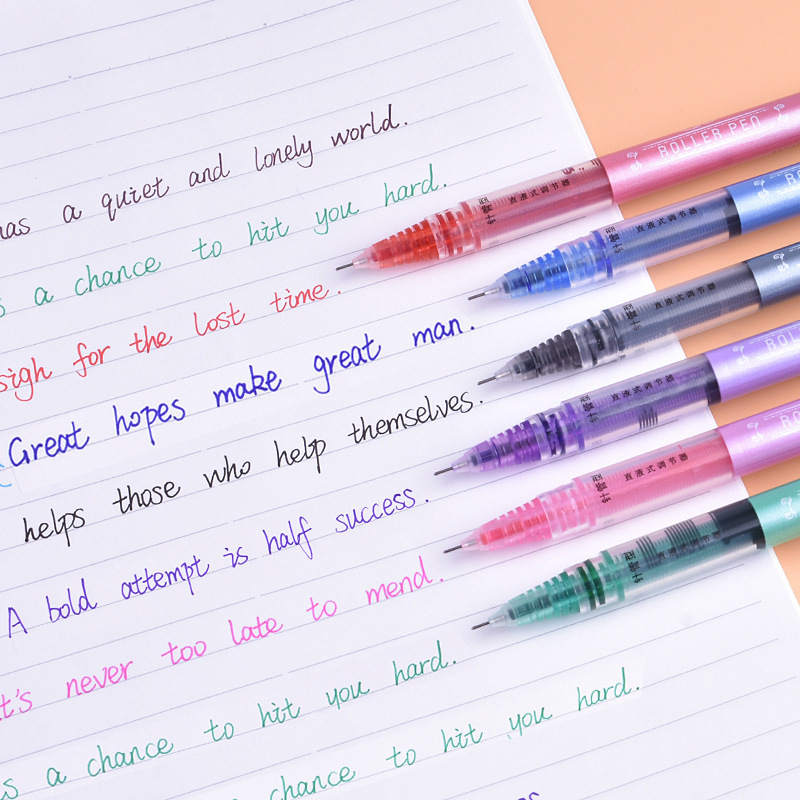 has a quiet and lonely world.
s a chance to hit you hard.
sigh for the lost time.
Great hopes make great man.
helps those who help themselves.
A bold attempt is half success.
t's never too late to mend.
s a chance to hit you hard.
chance to hit you hard.
ROLLER PEN
针管型 直液式调节器
针管型 直液式调节器
针管型 直液式调节器
ROL
针管型 直液式调节器
ROL
针管型 直液式调节器
针管型 直液式调节器